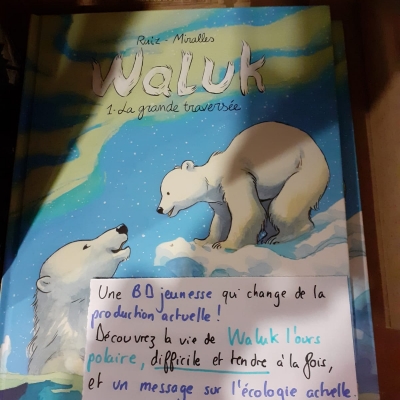 Ruiz - Miralles
Waluk
1. La grande traversée
Une BD jeunesse qui change de la
production actuelle !
Découvrez la vie de Waluk l'ours
polaire, difficile et tendre à la fois,
et un message sur l'écologie actuelle.